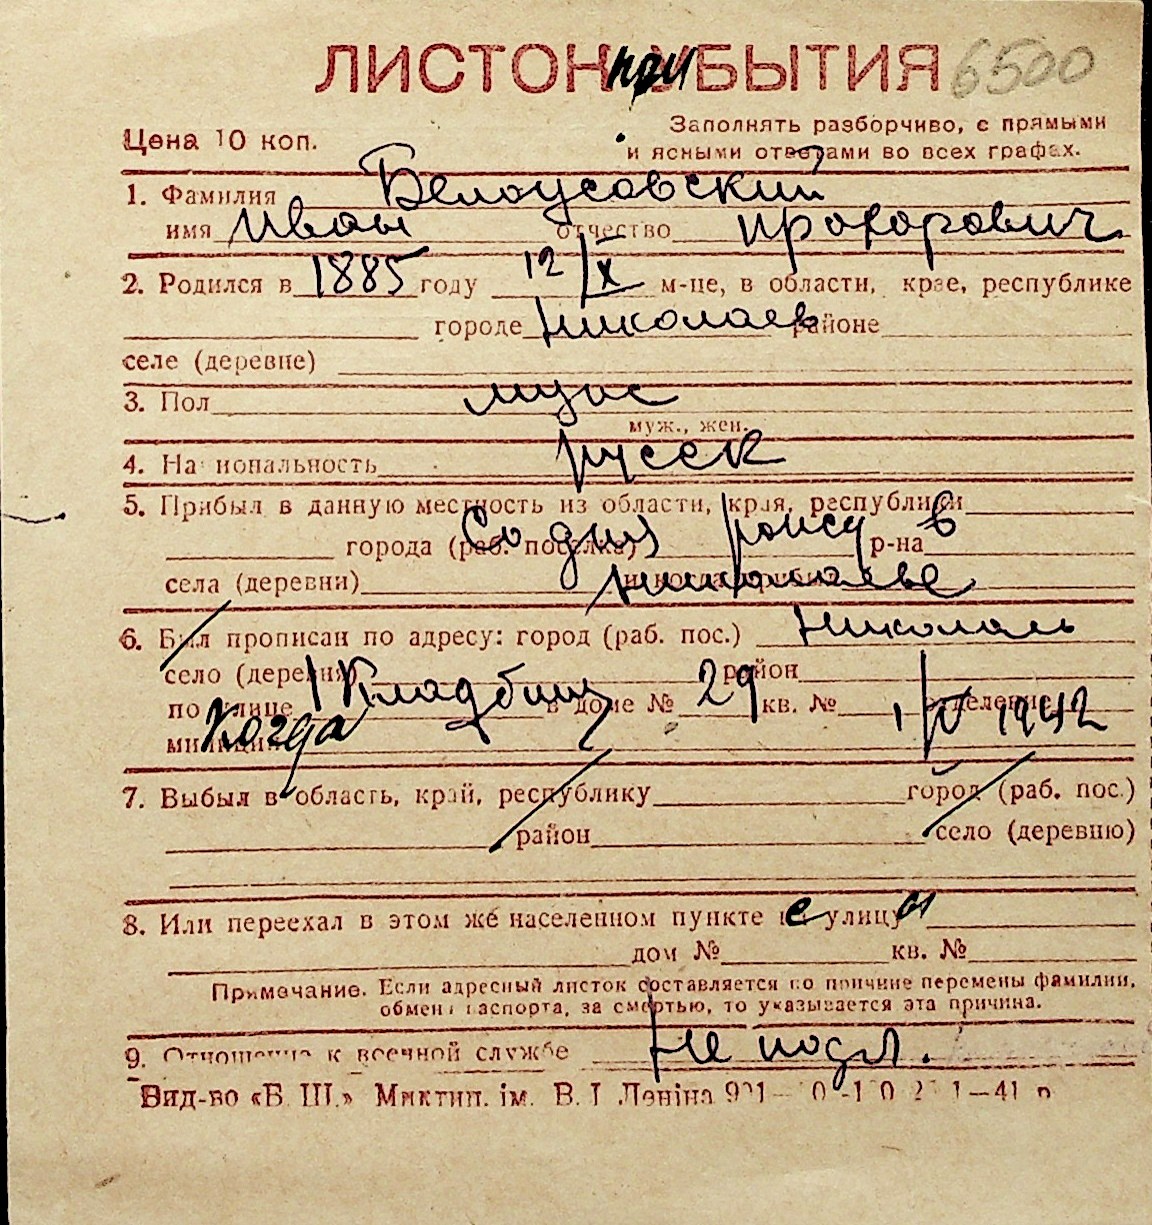 ЛИСТОК при УБЫТИЯ 6500
Цена 10 коп.
Заполнять разборчиво, с прямыми
и ясными ответами во всех графах.
1. Фамилия Белоусовский
имя Иван отчество Прохорович
2. Родился в 1885 году 12/X м-це, в области, крае, республике
городе Николаев районе
селе (деревне)
3. Пол муж
муж., жен.
4. Национальность русск
5. Прибыл в данную местность из области, края, республики
города (раб. поселка) Со дня рожд р-на в
села (деревни) Николаеве
6. Был прописан по адресу: город (раб. пос.) Николаев
село (деревня) район
по улице 1 Кладбищ в доме № 29 кв. № отделение
милиции Когда 1/IV 1942
7. Выбыл в область, край, республику город (раб. пос.)
район село (деревню)
8. Или переехал в этом же населенном пункте с улицы
дом № кв. №
Примечание. Если адресный листок составляется по причине перемены фамилии,
обмена паспорта, за смертью, то указывается эта причина.
9. Отношение к военной службе Не подл.
Вид-во «Б. Ш.» Миктип. ім. В. І. Леніна